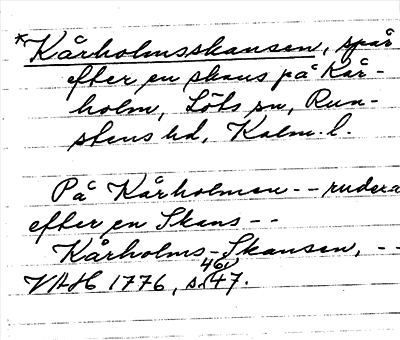 *Kårholmsskansen, spår
efter en skans på Kår-
holm, Löts sn, Run-
stens hd, Kalm. l.
På Kårholmen -- rudera
efter en Skans --
Kårholms-Skansen, --
VAH 1776, s. 47.